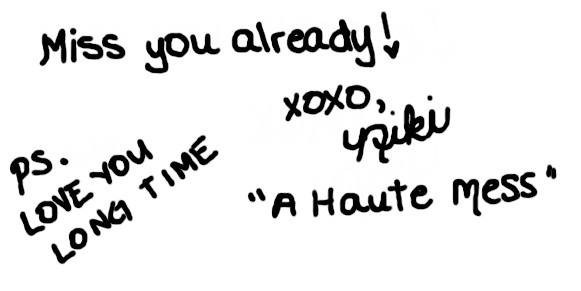 Miss you already!
xoxo,
"A Haute mess"
PS.
LOVE YOU
LONG TIME